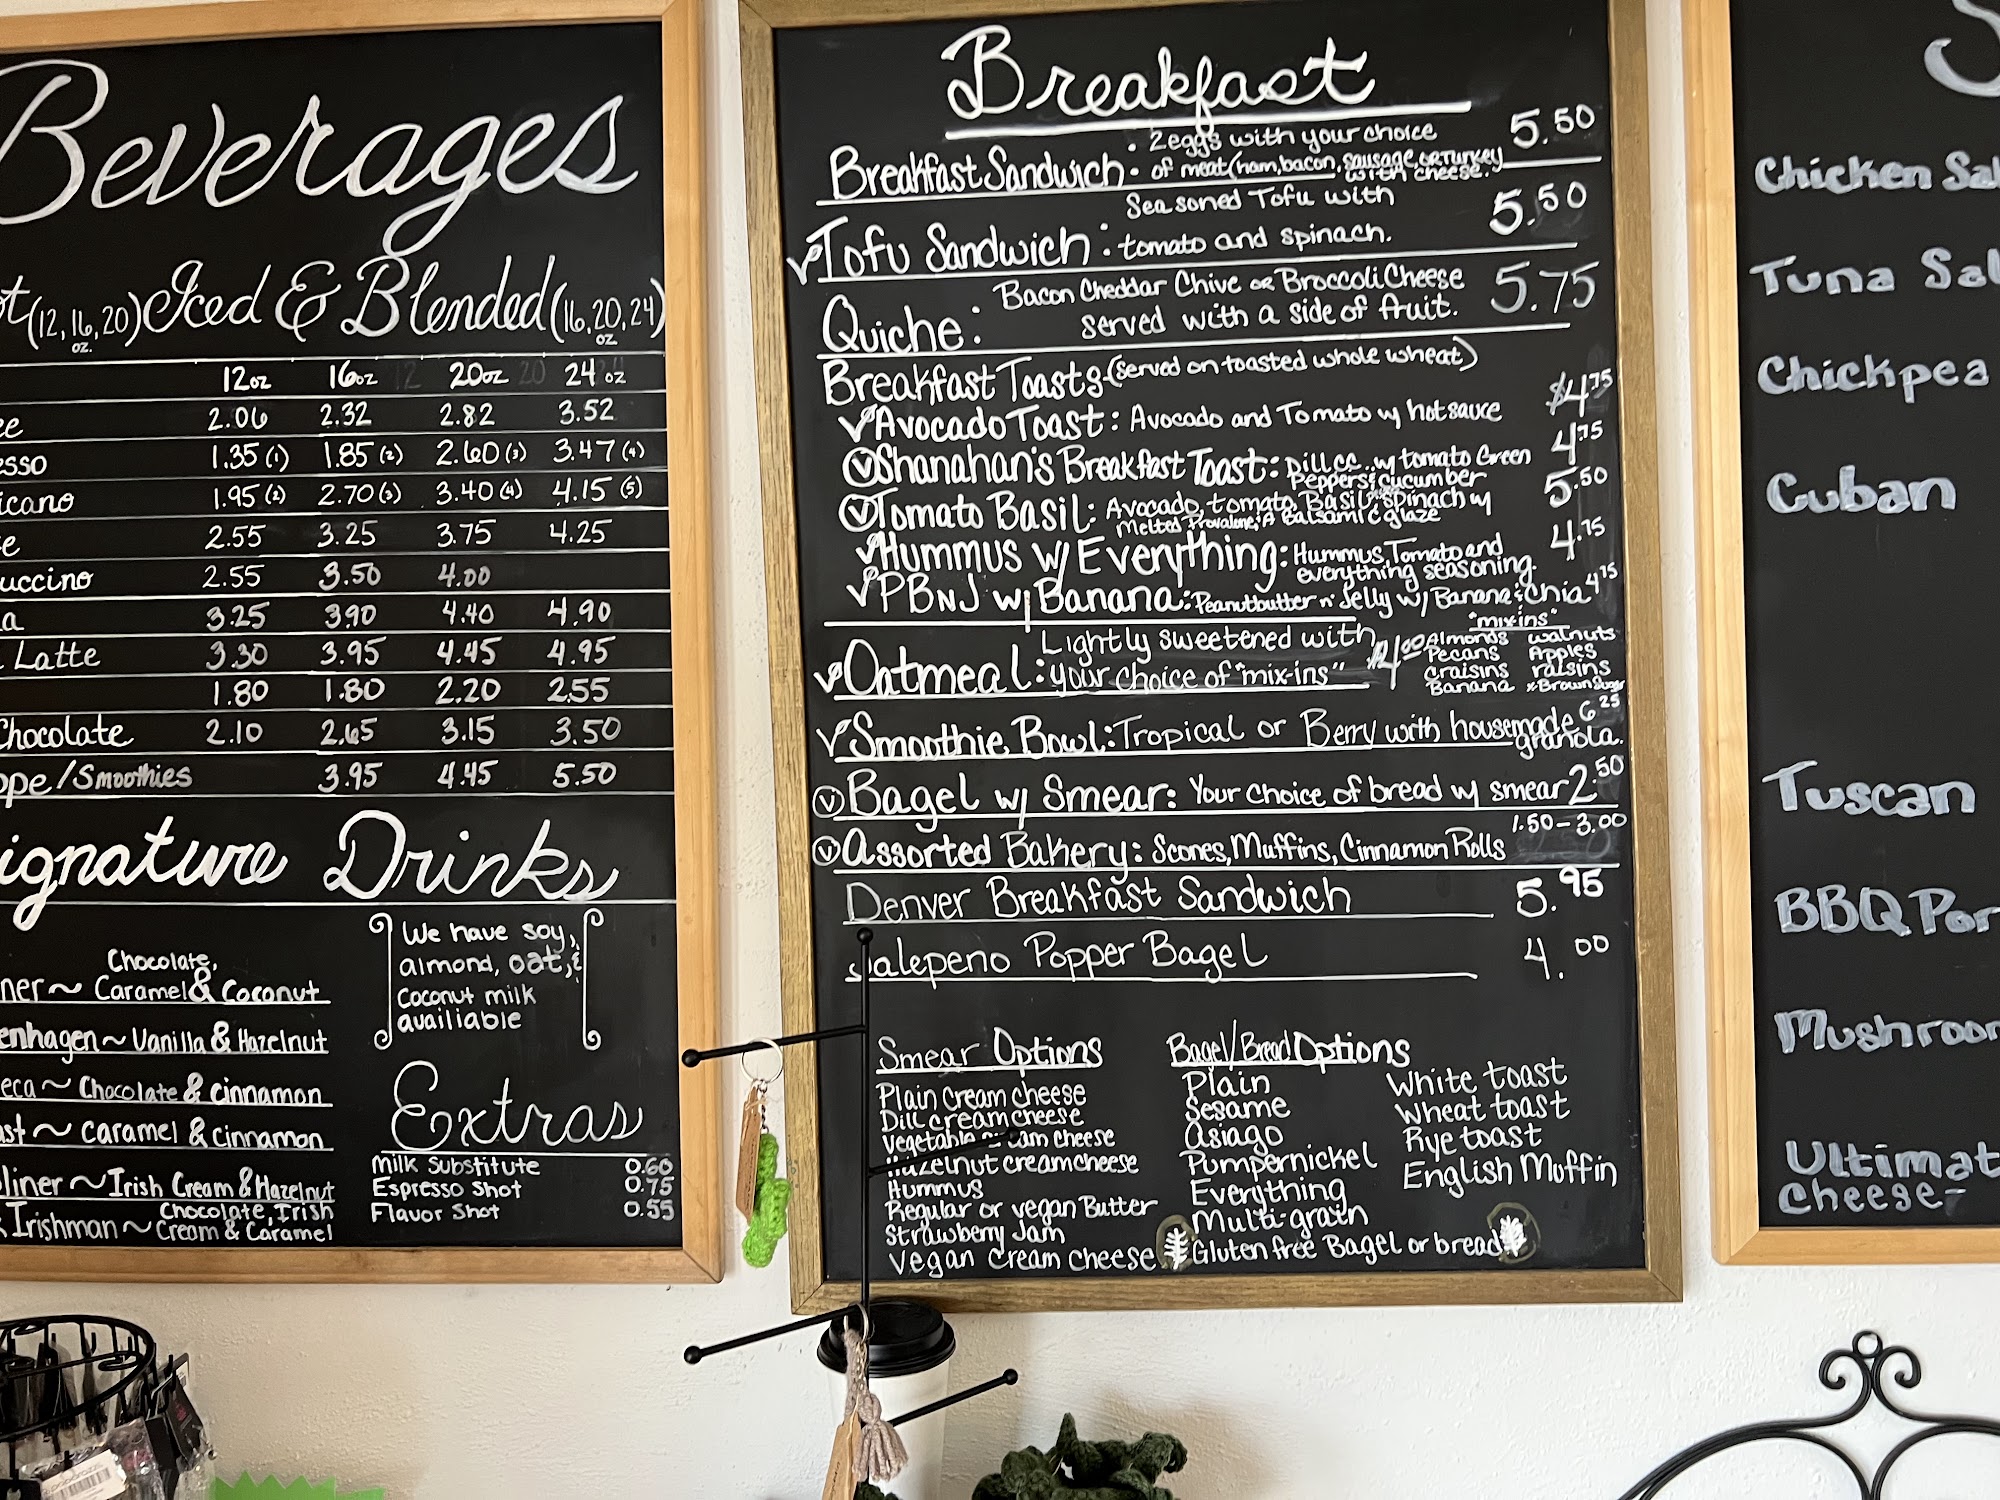 Beverages
(12, 16, 20) Iced & Blended (16, 20, 24)
oz. oz
12oz 16oz 20oz 24 oz
2.06 2.32 2.82 3.52
1.35 (1) 1.85 (2) 2.60 (3) 3.47 (4)
1.95 (2) 2.70 (3) 3.40 (4) 4.15 (5)
2.55 3.25 3.75 4.25
2.55 3.50 4.00
3.25 3.90 4.40 4.90
Latte 3.30 3.95 4.45 4.95
1.80 1.80 2.20 2.55
Chocolate 2.10 2.65 3.15 3.50
ppe/Smoothies 3.95 4.45 5.50
ignature Drinks
Chocolate,
ner~ Caramel & Coconut
enhagen~ Vanilla & Hazelnut
eca~ Chocolate & cinnamon
ast~ caramel & cinnamon
liner~ Irish Cream & Hazelnut
Chocolate, Irish
Irishman~ Cream & Caramel
We have soy,
almond, oat, &
coconut milk
availiable
Extras
Milk Substitute 0.60
Espresso Shot 0.75
Flavor Shot 0.55
Breakfast
Breakfast Sandwich • 2 eggs with your choice 5.50
of meat (ham, bacon, sausage, or turkey
with cheese.
Seasoned Tofu with
V Tofu Sandwich: tomato and spinach. 5.50
Quiche: Bacon Cheddar Chive or Broccoli Cheese 5.75
served with a side of fruit.
Breakfast Toasts- (served on toasted whole wheat)
V Avocado Toast: Avocado and Tomato w/ hotsauce $4.75
V Shanahan's Breakfast Toast: Dill cc. w/ tomato Green 4.75
Peppers & cucumber
V Tomato Basil: Avocado, tomato, Basil, spinach w/ 5.50
Melted Provalone & A Balsamic glaze
V Hummus w/ Everything: Hummus, Tomato and 4.75
everything seasoning.
V PBNJ w/ Banana: Peanutbutter n' Jelly w/ Banana & Chia 4.75
Lightly sweetened with
V Oatmeal: your choice of "mix-ins" $4.00
"mix-ins"
Almonds walnuts
Pecans Apples
Craisins raisins
Banana Brown Sugar
V Smoothie Bowl: Tropical or Berry with housemade 6.25
granola.
V Bagel w/ Smear: Your choice of bread w/ smear 2.50
V Assorted Bakery: Scones, Muffins, Cinnamon Rolls 1.50-3.00
Denver Breakfast Sandwich 5.95
Jalepeno Popper Bagel 4.00
Smear Options
Plain cream cheese
Dill cream cheese
Vegetable cream cheese
Hazelnut creamcheese
Hummus
Regular or vegan Butter
Strawberry Jam
Vegan cream cheese
Bagel/Bread Options
Plain
Sesame
Asiago
Pumpernickel
Everything
Multi-grain
Gluten free Bagel or bread
White toast
Wheat toast
Rye toast
English Muffin
Chicken Sal
Tuna Sal
Chickpea
Cuban
Tuscan
BBQ Por
Mushroom
Ultimat
Cheese-